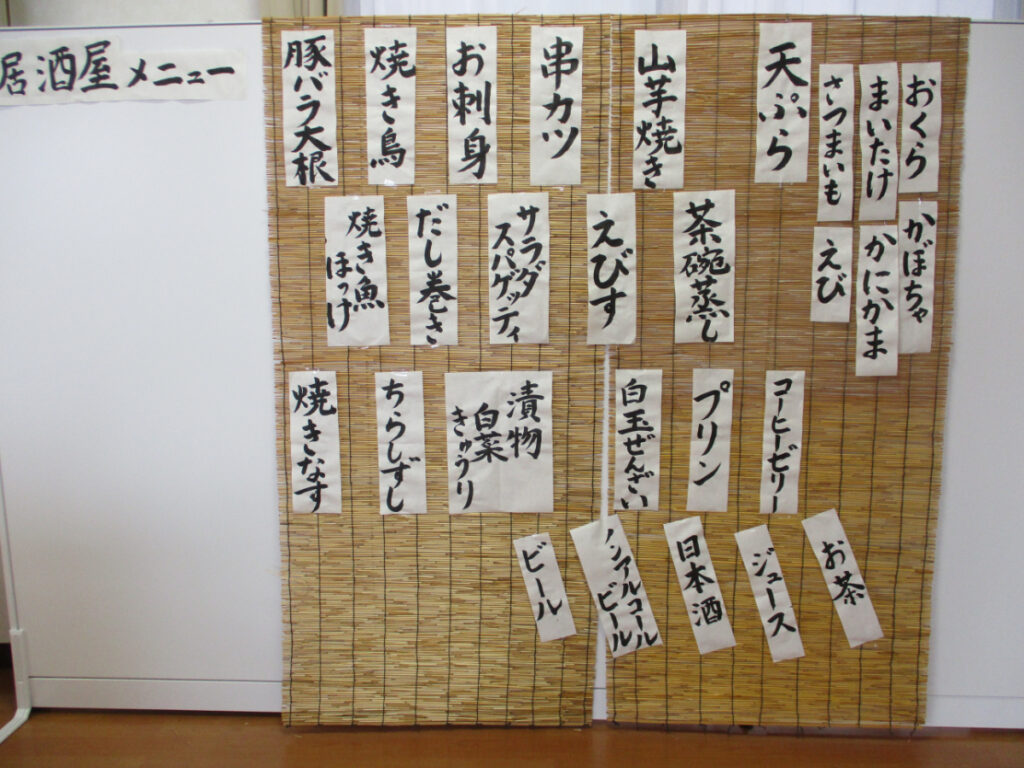 居酒屋メニュー
天ぷら
おくら
まいたけ
さつまいも
かぼちゃ
かにかま
えび
山芋焼き
串カツ
お刺身
焼き鳥
豚バラ大根
茶碗蒸し
えびす
サラダ
スパゲッティ
だし巻き
焼き魚
ほっけ
コーヒーゼリー
プリン
白玉ぜんざい
漬物
白菜
きゅうり
ちらしずし
焼きなす
お茶
ジュース
日本酒
ノンアルコール
ビール
ビール